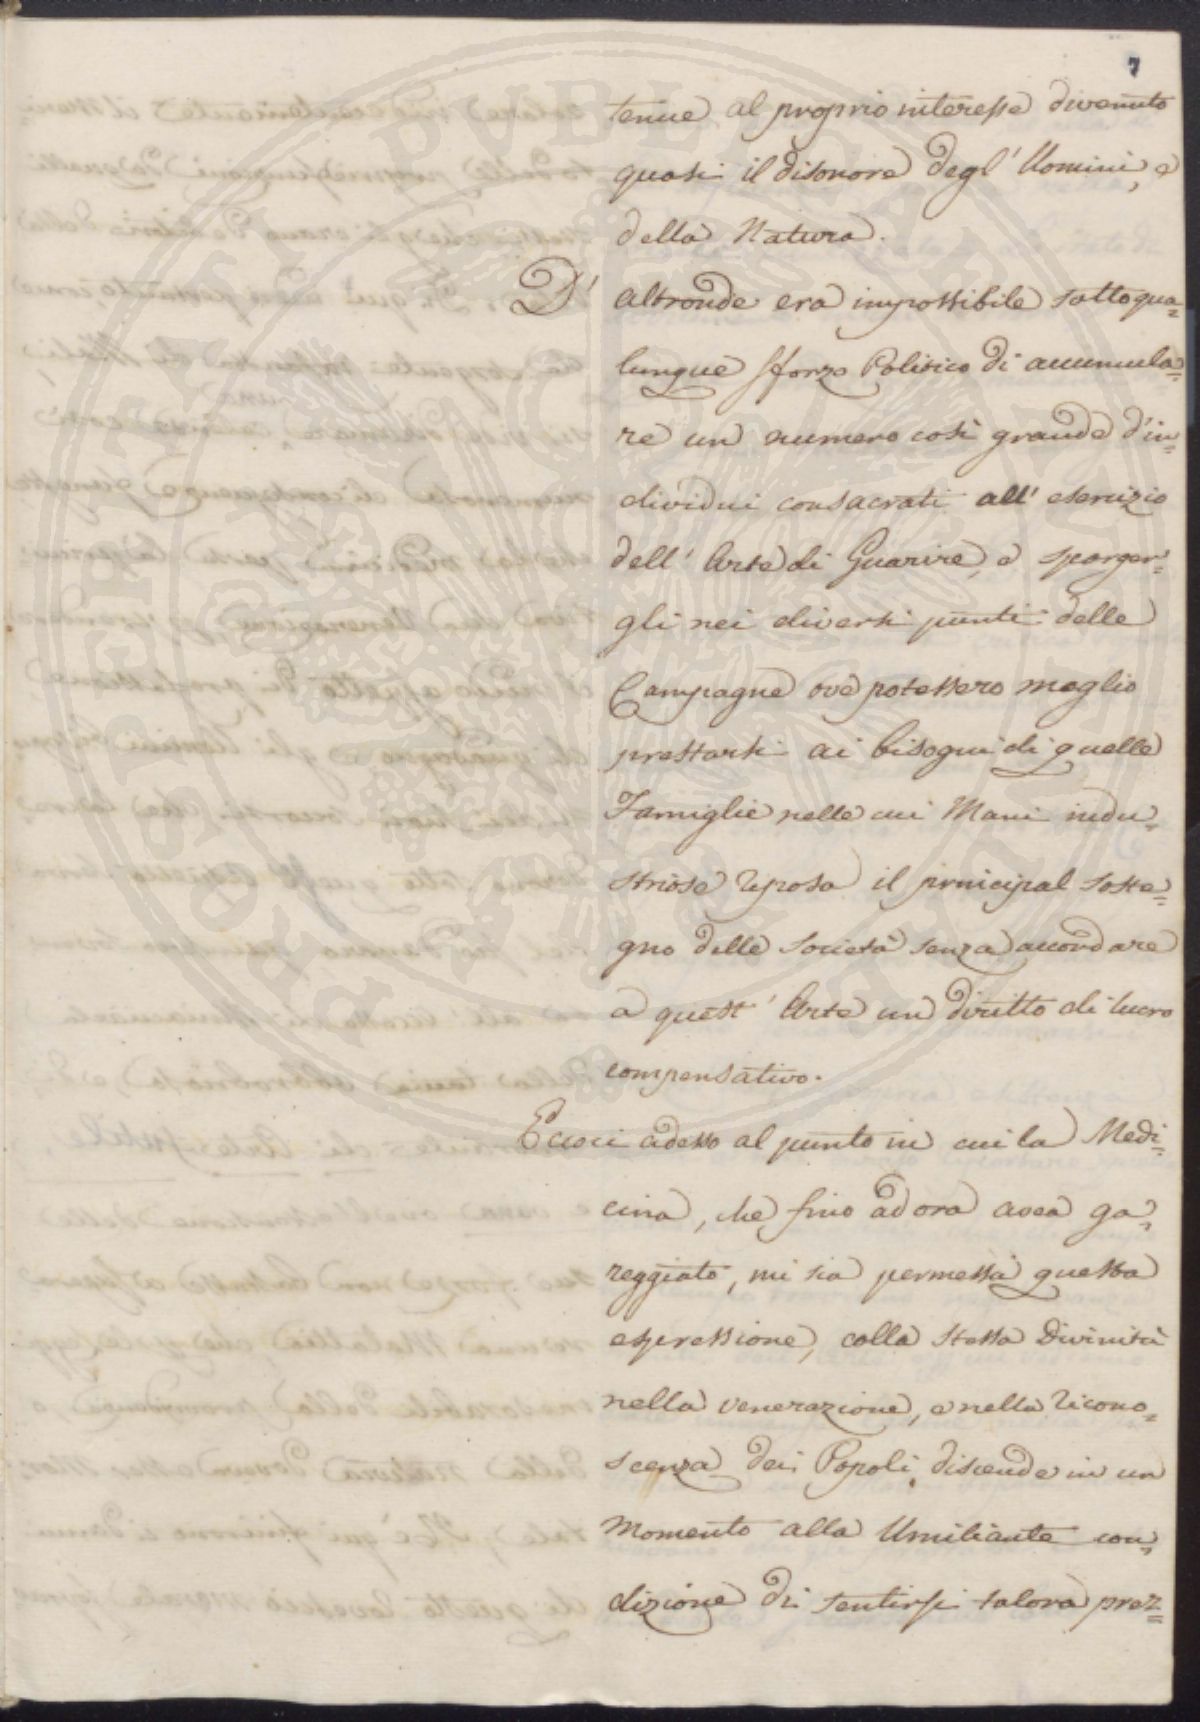 7
tenue al proprio interesse divenuto
quasi il disonore degl' Uomini, e
della Natura.
D' altronde era impossibile sotto qua=
lunque sforzo Politico di accumula=
re un numero così grande d'in=
dividui consacrati all' esercizio
dell' Arte di Guarire, e sparger=
gli nei diversi punti delle
Campagne ove potessero meglio
prestarsi ai bisogni di quelle
Famiglie nelle cui Mani indu=
striose riposa il principal soste=
gno delle Società senza accordare
a quest' Arte un diritto di lucro
compensativo.
Eccoci adesso al punto in cui la Medi=
cina, che fino ad ora avea ga=
reggiato, mi sia permessa questa
espressione, colla stessa Divinità
nella venerazione, e nella ricono=
scenza dei Popoli, discende in un
Momento alla Umiliante con=
dizione di sentirsi talora prez=